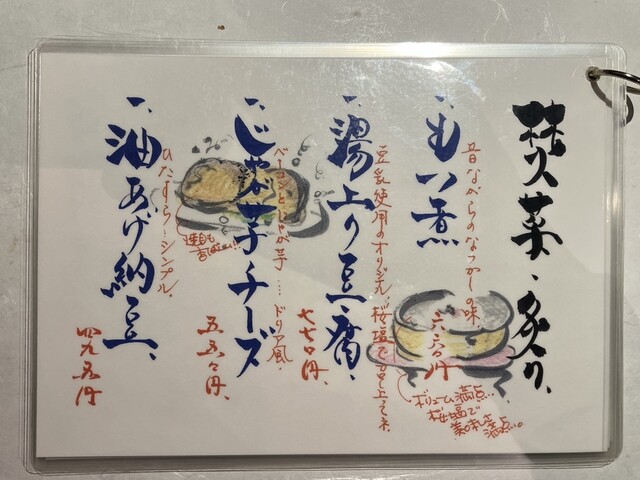 一、もつ煮
昔ながらのなつかしの味
六六〇円
一、湯上り豆腐、
豆乳使用のオリジナル、桜塩で召し上って不
七七〇円、
ボリューム満点…
桜塩で
美味しさ
満点…。
一、じゃが芋チーズ
ベーコンとじゃが芋……ドリア風、
五五〇円、
一、油あげ納豆、
ひたすら！シンプル、
四九五円